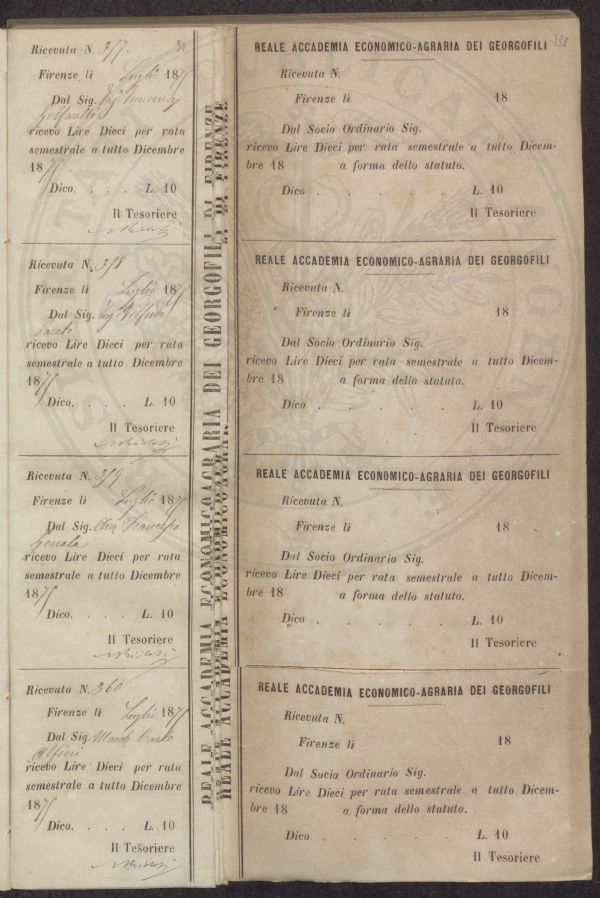 Ricevuta N. 357.
Firenze lì Luglio 187
Dal Sig.
ricevo Lire Dieci per rata
semestrale a tutto Dicembre
187
Dico. . . . L. 10
Il Tesoriere
Ricevuta N. 358
Firenze lì Luglio 187
Dal Sig. Alfredo
ricevo Lire Dieci per rata
semestrale a tutto Dicembre
187
Dico. . . . L. 10
Il Tesoriere
Ricevuta N. 359
Firenze lì Luglio 187
Dal Sig. Francesco
Genala
ricevo Lire Dieci per rata
semestrale a tutto Dicembre
187
Dico. . . . L. 10
Il Tesoriere
Ricevuta N. 360
Firenze lì Luglio 187
Dal Sig. March. Carlo
Alfieri
ricevo Lire Dieci per rata
semestrale a tutto Dicembre
187
Dico. . . . L. 10
Il Tesoriere
REALE ACCADEMIA ECONOMICO-AGRARIA DEI GEORGOFILI DI FIRENZE
REALE ACCADEMIA ECONOMICO-AGRAR
A DI FIRENZE
REALE ACCADEMIA ECONOMICO-AGRARIA DEI GEORGOFILI
Ricevuta N.
Firenze lì 18
Dal Socio Ordinario Sig.
ricevo Lire Dieci per rata semestrale a tutto Dicem-
bre 18 a forma dello statuto.
Dico . . . . . L. 10
Il Tesoriere
REALE ACCADEMIA ECONOMICO-AGRARIA DEI GEORGOFILI
Ricevuta N.
Firenze lì 18
Dal Socio Ordinario Sig.
ricevo Lire Dieci per rata semestrale a tutto Dicem-
bre 18 a forma dello statuto.
Dico . . . . . L. 10
Il Tesoriere
REALE ACCADEMIA ECONOMICO-AGRARIA DEI GEORGOFILI
Ricevuta N.
Firenze lì 18
Dal Socio Ordinario Sig.
ricevo Lire Dieci per rata semestrale a tutto Dicem-
bre 18 a forma dello statuto.
Dico . . . . . L. 10
Il Tesoriere
REALE ACCADEMIA ECONOMICO-AGRARIA DEI GEORGOFILI
Ricevuta N.
Firenze lì 18
Dal Socio Ordinario Sig.
ricevo Lire Dieci per rata semestrale a tutto Dicem-
bre 18 a forma dello statuto.
Dico . . . . . L. 10
Il Tesoriere